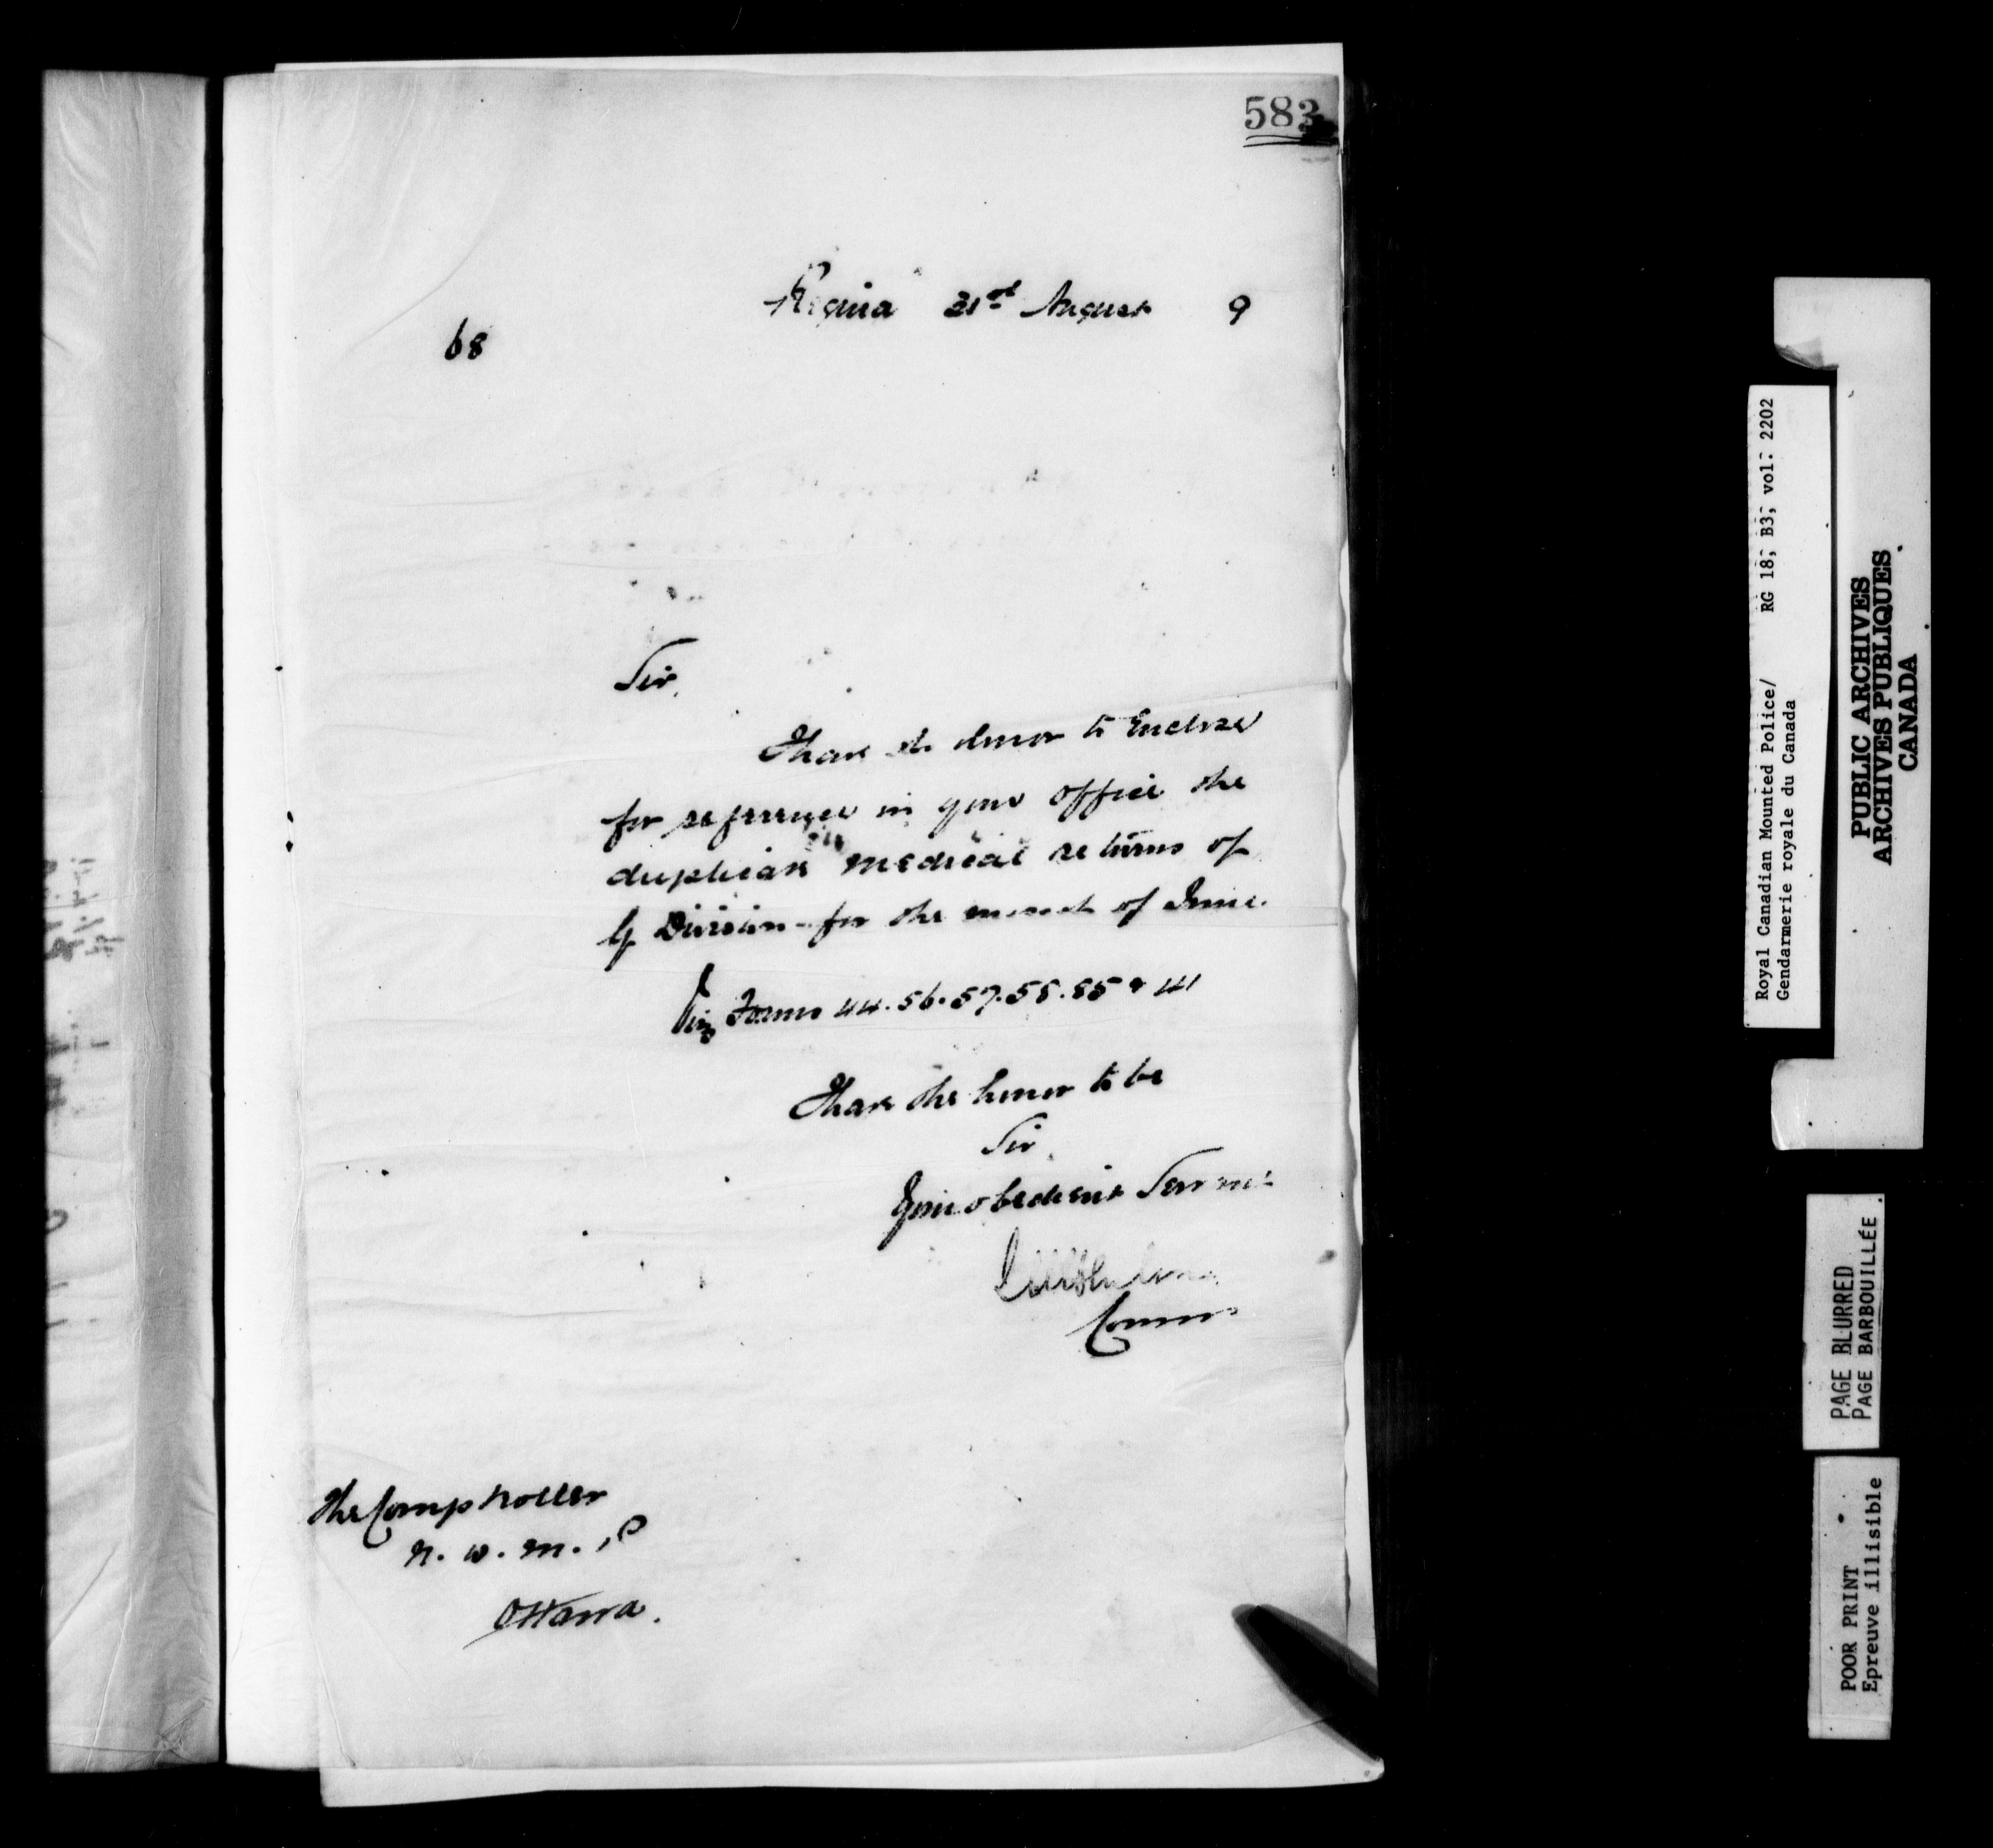 583
Regina 21st August 9
68
Sir,
I have the honor to Enclose
for reference in your office the
duplicate medical returns of
G Division for the month of June.
Viz Forms 44. 56. 57. 58. 85 & 141
I have the honor to be
Sir,
Your obedient Servant
Commr
The Comptroller
N. W. M. P
Ottawa.
Royal Canadian Mounted Police/ RG 18; B3; vol: 2202
Gendarmerie royale du Canada
PUBLIC ARCHIVES
ARCHIVES PUBLIQUES
CANADA
PAGE BLURRED
PAGE BARBOUILLÉE
POOR PRINT
Epreuve illisible